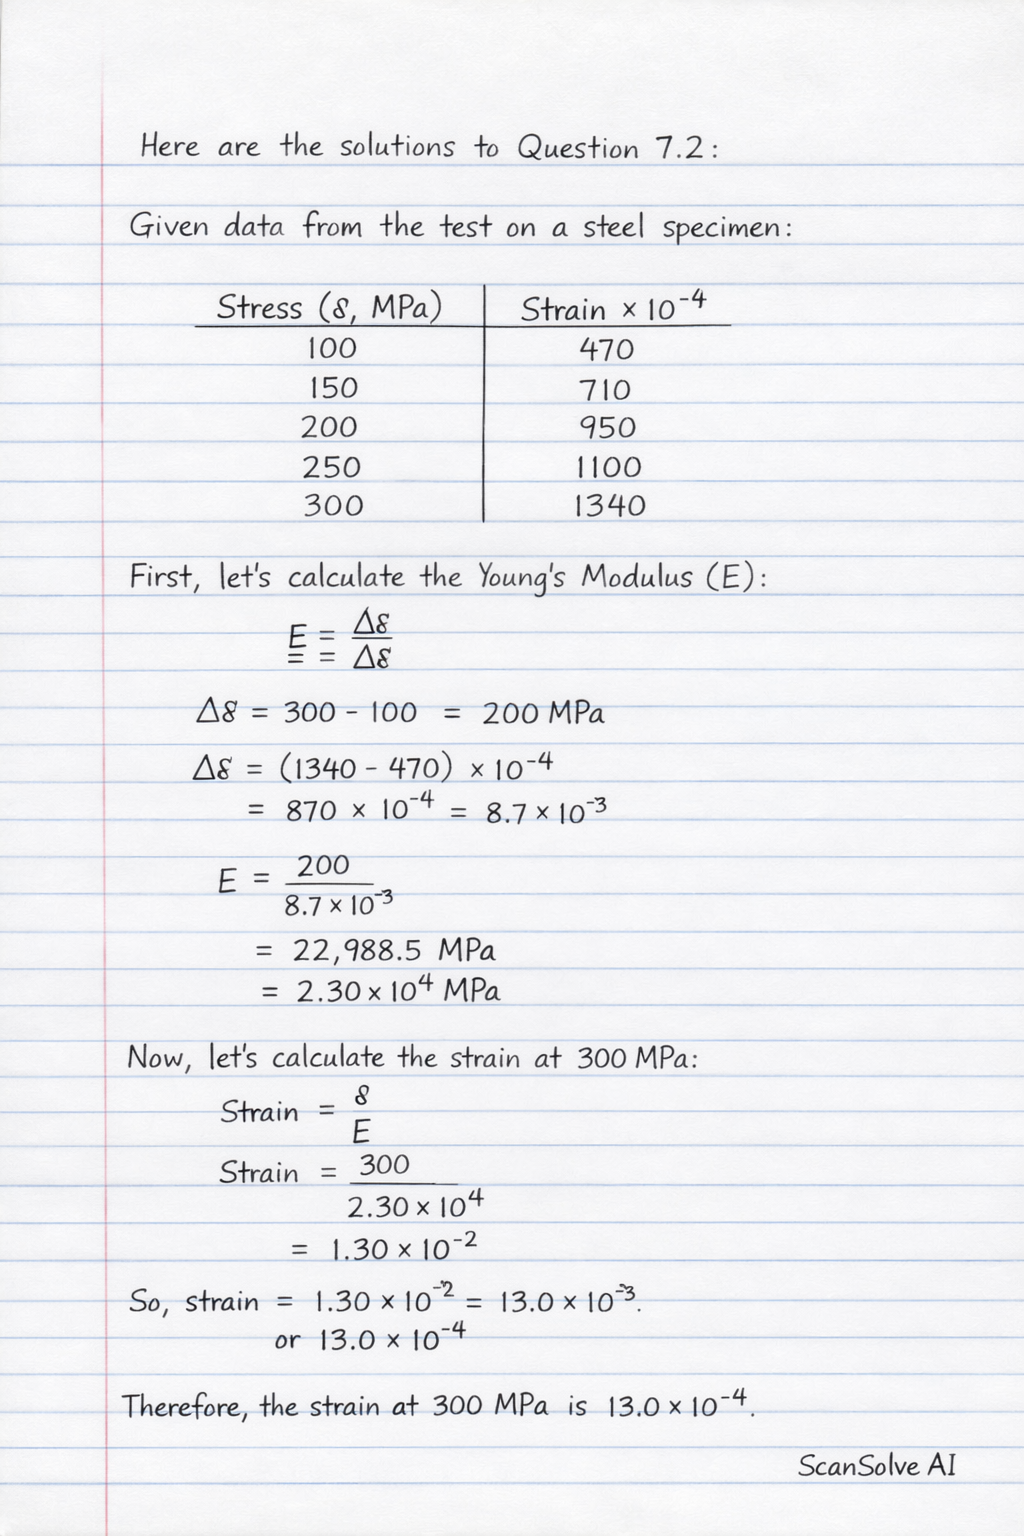 Here are the solutions to Question 7.2:
Given data from the test on a steel specimen:
Stress (8, MPa) Strain × 10⁻⁴
100 470
150 710
200 950
250 1100
300 1340
First, let's calculate the Young's Modulus (E):
E = Δ8
= = Δ8
Δ8 = 300 - 100 = 200 MPa
Δ8 = (1340 - 470) × 10⁻⁴
= 870 × 10⁻⁴ = 8.7 × 10⁻³
E = 200
8.7 × 10⁻³
= 22,988.5 MPa
= 2.30 × 10⁴ MPa
Now, let's calculate the strain at 300 MPa:
Strain = 8
E
Strain = 300
2.30 × 10⁴
= 1.30 × 10⁻²
So, strain = 1.30 × 10⁻² = 13.0 × 10⁻³.
or 13.0 × 10⁻⁴
Therefore, the strain at 300 MPa is 13.0 × 10⁻⁴.
ScanSolve AI